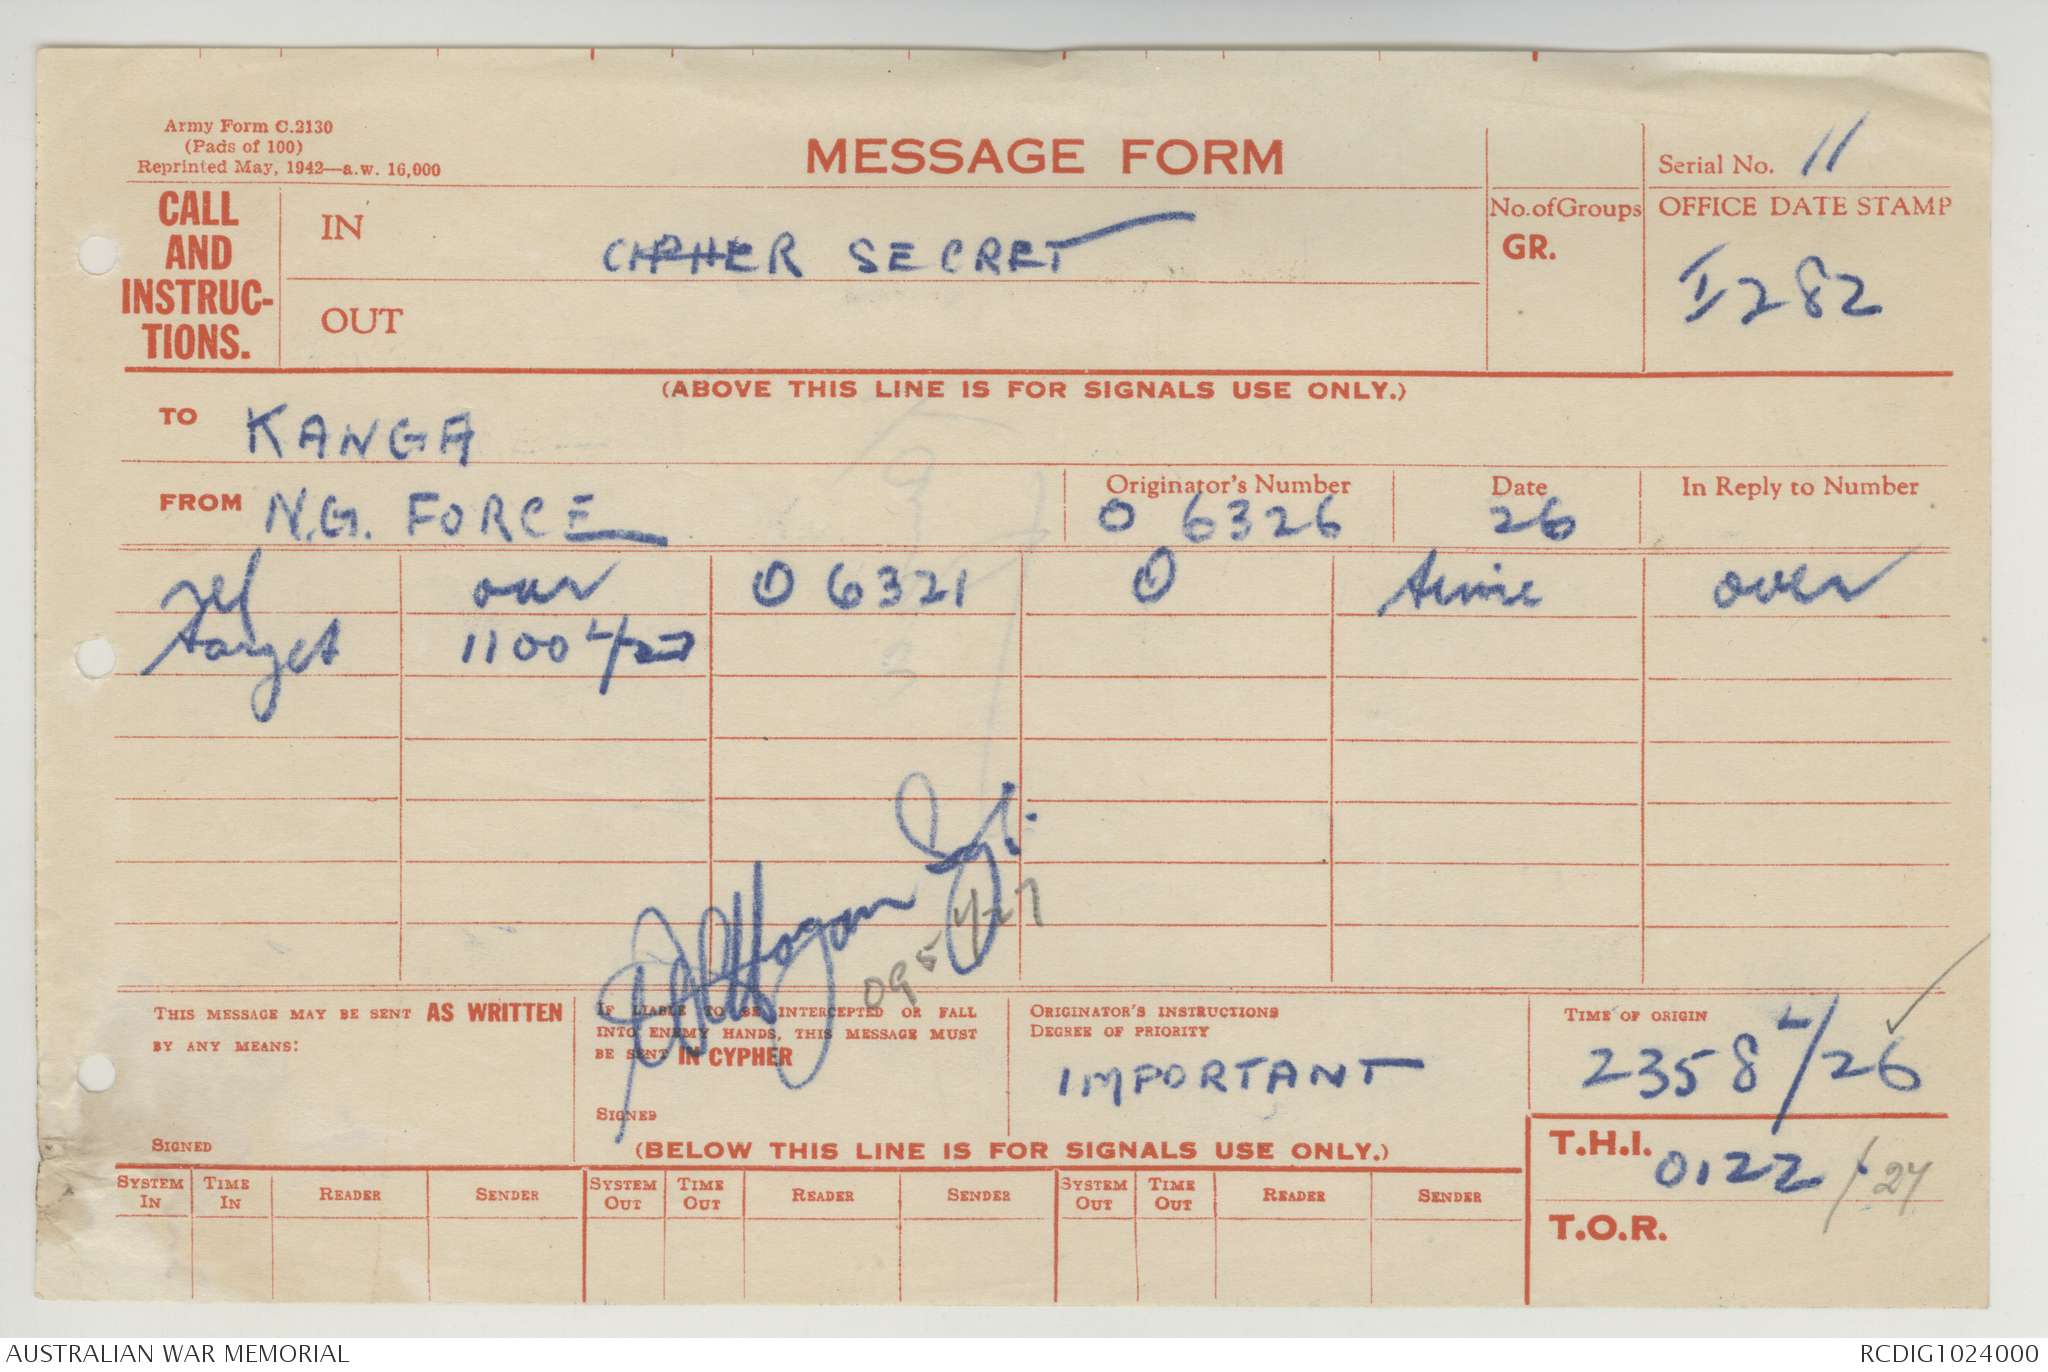 Army Form C.2130
(Pads of 100)
Reprinted May, 1942—a.w. 16,000
MESSAGE FORM
Serial No. 11
CALL AND INSTRUC-TIONS.
IN
CIPHER SECRET
OUT
No. of Groups
GR.
OFFICE DATE STAMP
I 282
(ABOVE THIS LINE IS FOR SIGNALS USE ONLY.)
TO KANGA
FROM N.G. FORCE
Originator's Number
O 6326
Date
26
In Reply to Number
ref our O 6321 O time over
target 1100 L/27
Hogan
095 /27
THIS MESSAGE MAY BE SENT AS WRITTEN
BY ANY MEANS:
SIGNED
IF LIABLE TO BE INTERCEPTED OR FALL
INTO ENEMY HANDS, THIS MESSAGE MUST
BE SENT IN CYPHER
SIGNED
ORIGINATOR'S INSTRUCTIONS
DEGREE OF PRIORITY
IMPORTANT
TIME OF ORIGIN
2358 L/26
(BELOW THIS LINE IS FOR SIGNALS USE ONLY.)
T.H.I. 0122 / 27
T.O.R.
SYSTEM IN TIME IN READER SENDER SYSTEM OUT TIME OUT READER SENDER SYSTEM OUT TIME OUT READER SENDER
AUSTRALIAN WAR MEMORIAL
RCDIG1024000